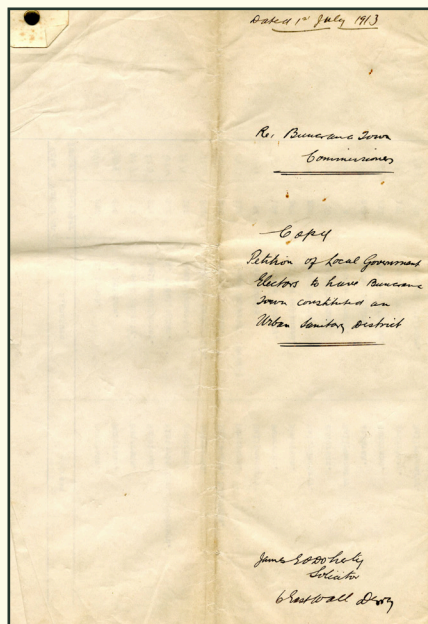 Dated 1st July 1913
Re, Buncrana Town
Commissioners
Copy
Petition of Local Government
Electors to have Buncrana
Town constituted an
Urban Sanitary District
James E O'Doherty
Solicitor
6 East Wall Derry